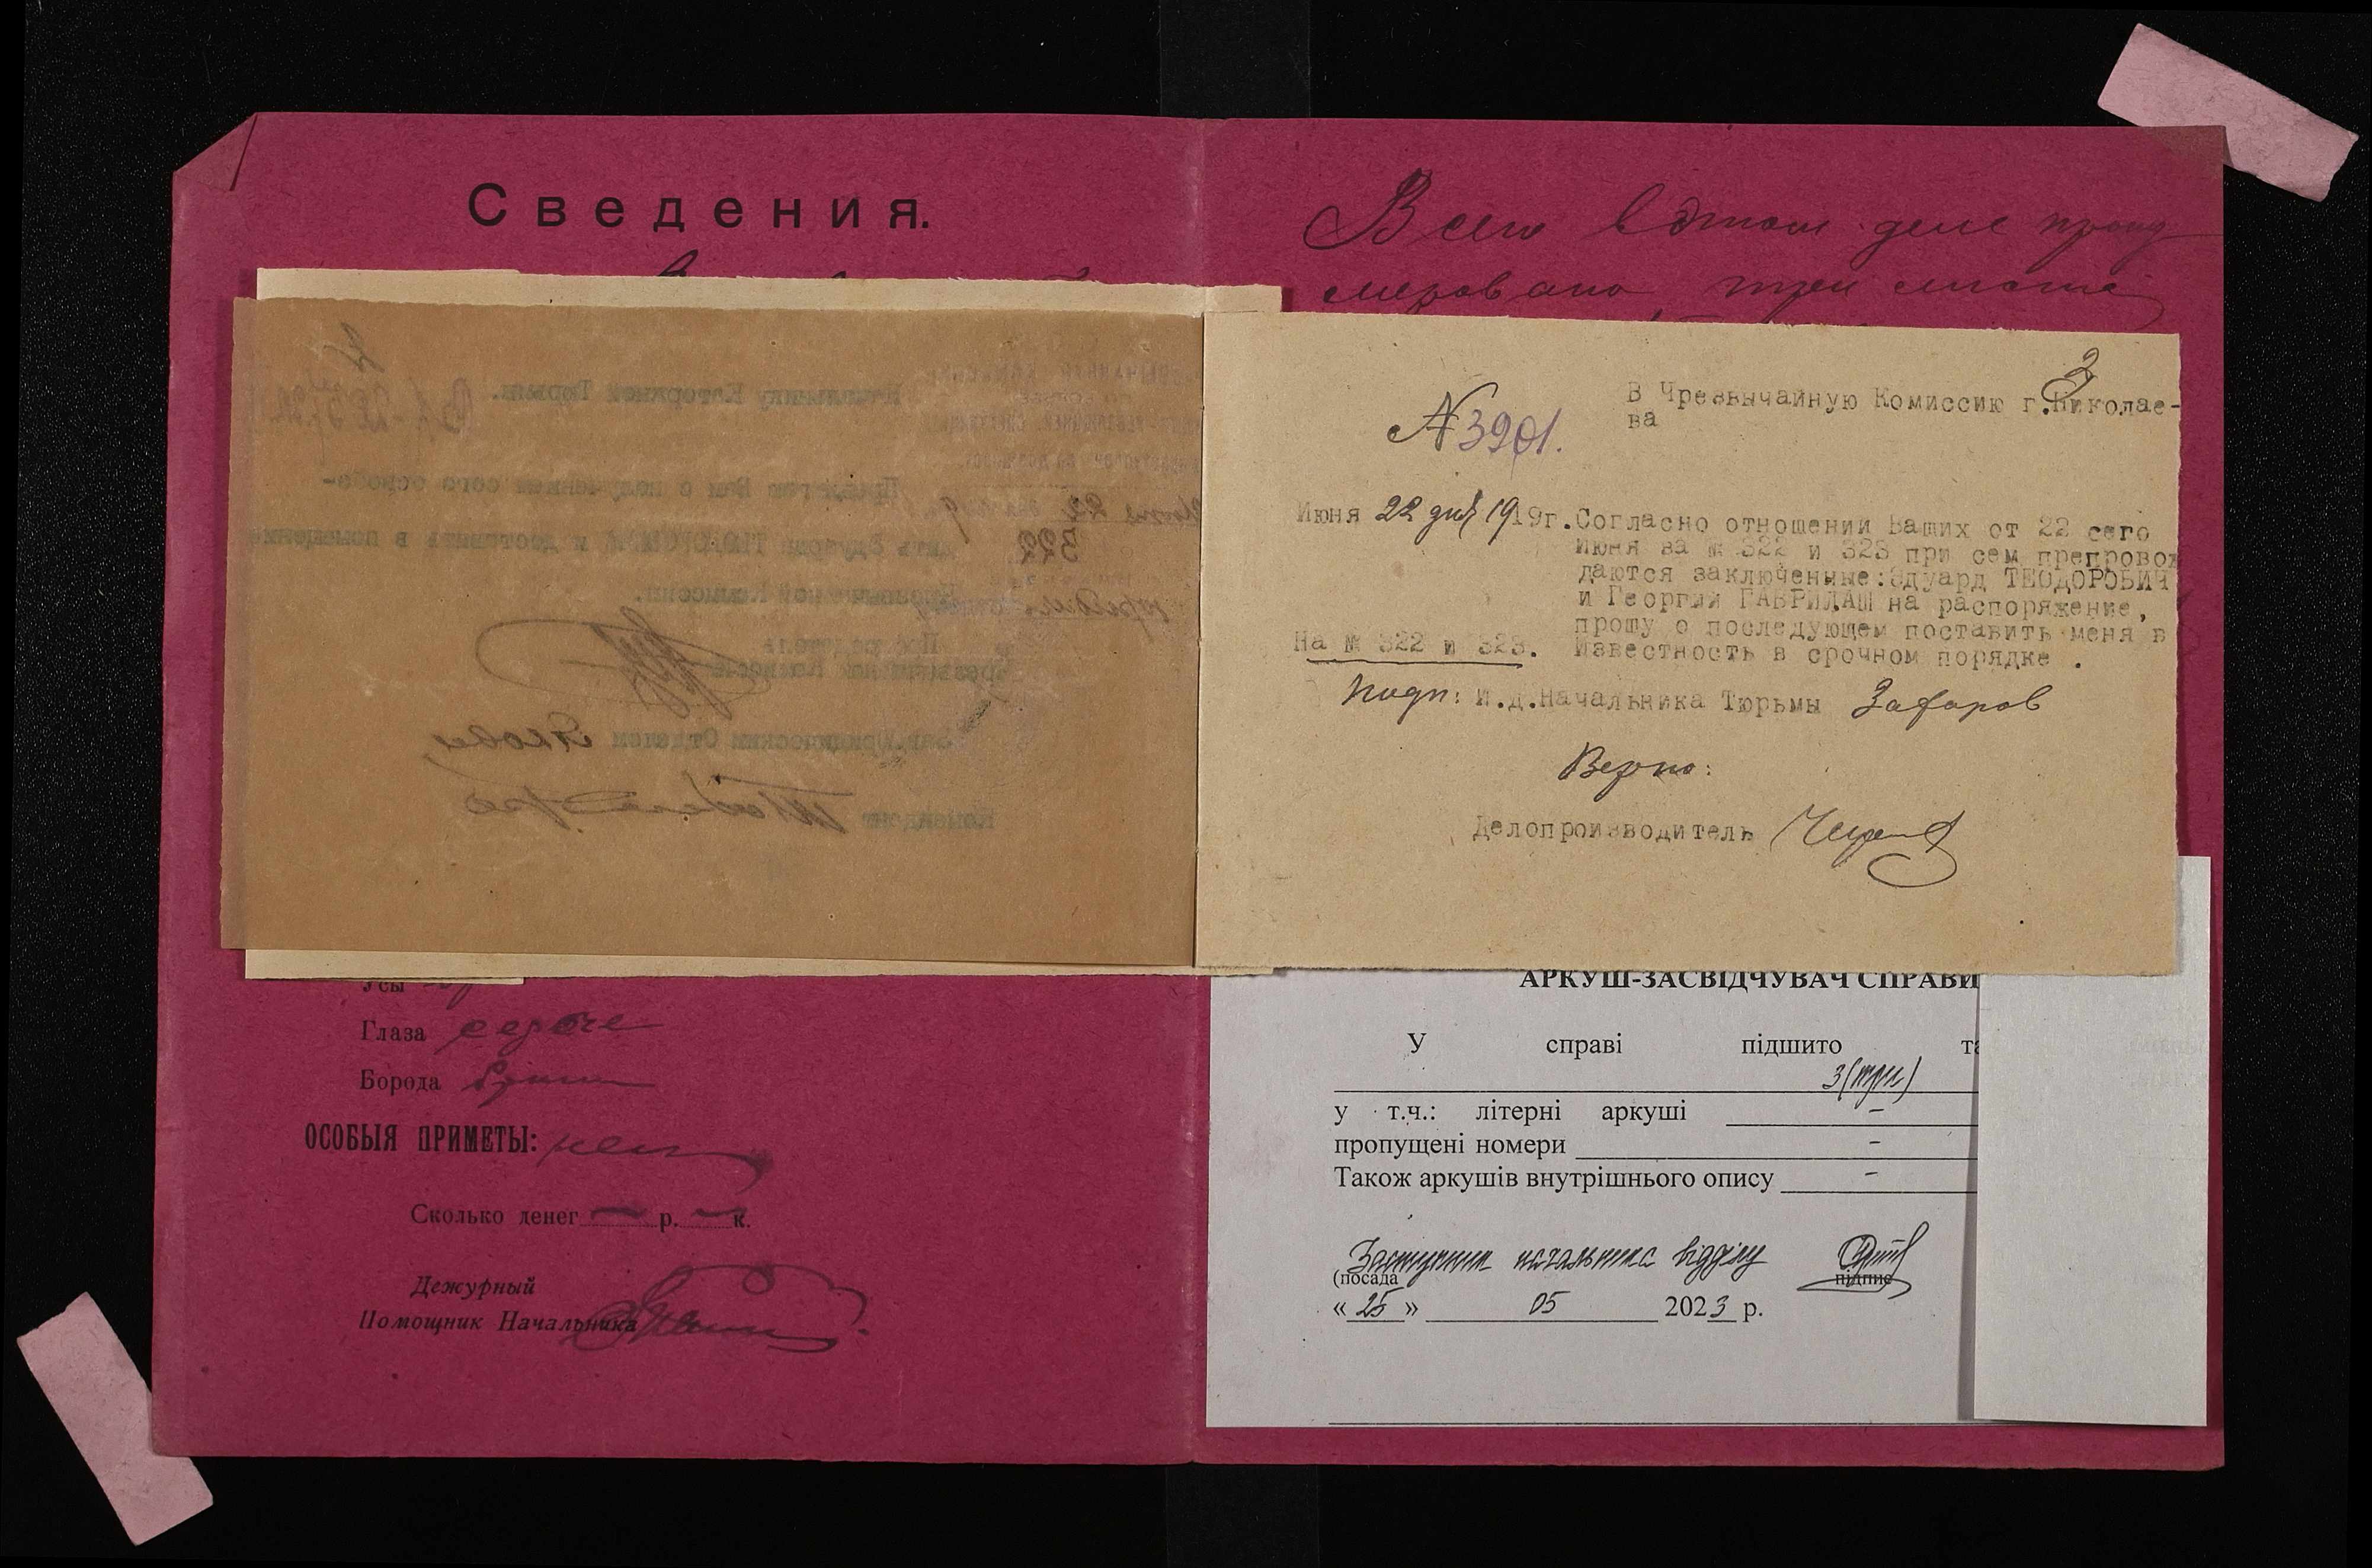 Сведения.
Всего в этом деле прону
меровано три листа
Начальнику Каторжной Тюрьмы.
Предлагаю Вам с получением сего освобо-
дить Эдуарда ТЕОДОРОВИЧА и доставить в помещение
Чрезвычайной Комиссии.
322
Председатель
Чрезвычайной Комиссии
Зав.Юридическим Отделом
Комендант
3
В Чрезвычайную Комиссию г.Николае-
ва
№ 3901.
Июня 22 дня 1919г. Согласно отношений Ваших от 22 сего
Июня за № 322 и 323 при сем препровож
даются заключенные:Эдуард ТЕОДОРОВИЧ
и Георгий ГАВРИЛАШ на распоряжение,
прошу о последующем поставить меня в
На № 322 и 323. Известность в срочном порядке .
Подп: И.д.Начальника Тюрьмы Захаров
Верно:
Делопроизводитель
Усы
Глаза серые
Борода
ОСОБЫЯ ПРИМЕТЫ: нет
Сколько денег — р. — к.
Дежурный
Помощник Начальника
АРКУШ-ЗАСВІДЧУВАЧ СПРАВИ
У справі підшито та
3 (три)
у т.ч.: літерні аркуші –
пропущені номери –
Також аркушів внутрішнього опису –
Заступник начальника відділу
(посада підпис
« 25 » 05 2023 р.